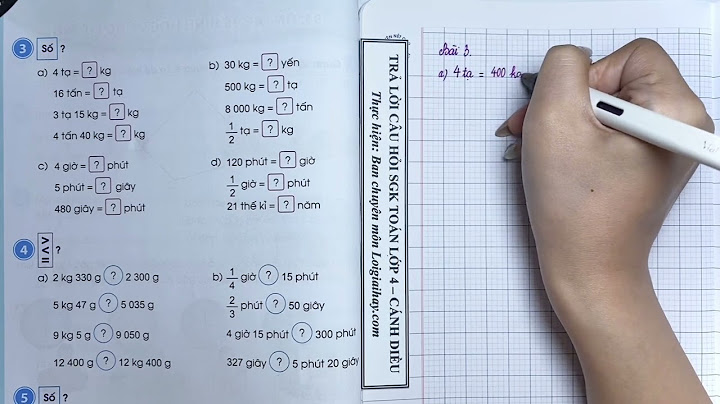 3 Số ?
a) 4 tạ = ? kg
16 tấn = ? tạ
3 tạ 15 kg = ? kg
4 tấn 40 kg = ? kg
b) 30 kg = ? yến
500 kg = ? tạ
8 000 kg = ? tấn
1/2 tạ = ? kg
c) 4 giờ = ? phút
5 phút = ? giây
480 giây = ? phút
d) 120 phút = ? giờ
1/2 giờ = ? phút
21 thế kỉ = ? năm
4 > < = ?
a) 2 kg 330 g ? 2 300 g
5 kg 47 g ? 5 035 g
9 kg 5 g ? 9 050 g
12 400 g ? 12 kg 400 g
b) 1/4 giờ ? 15 phút
2/3 phút ? 50 giây
4 giờ 15 phút ? 300 phút
327 giây ? 5 phút 20 giây
5 Số ?
TRẢ LỜI CÂU HỎI SGK TOÁN LỚP 4 – CÁNH DIỀU
Thực hiện: Ban chuyên môn Loigiaihay.com
Bài 3.
a) 4 tạ = 400 kg